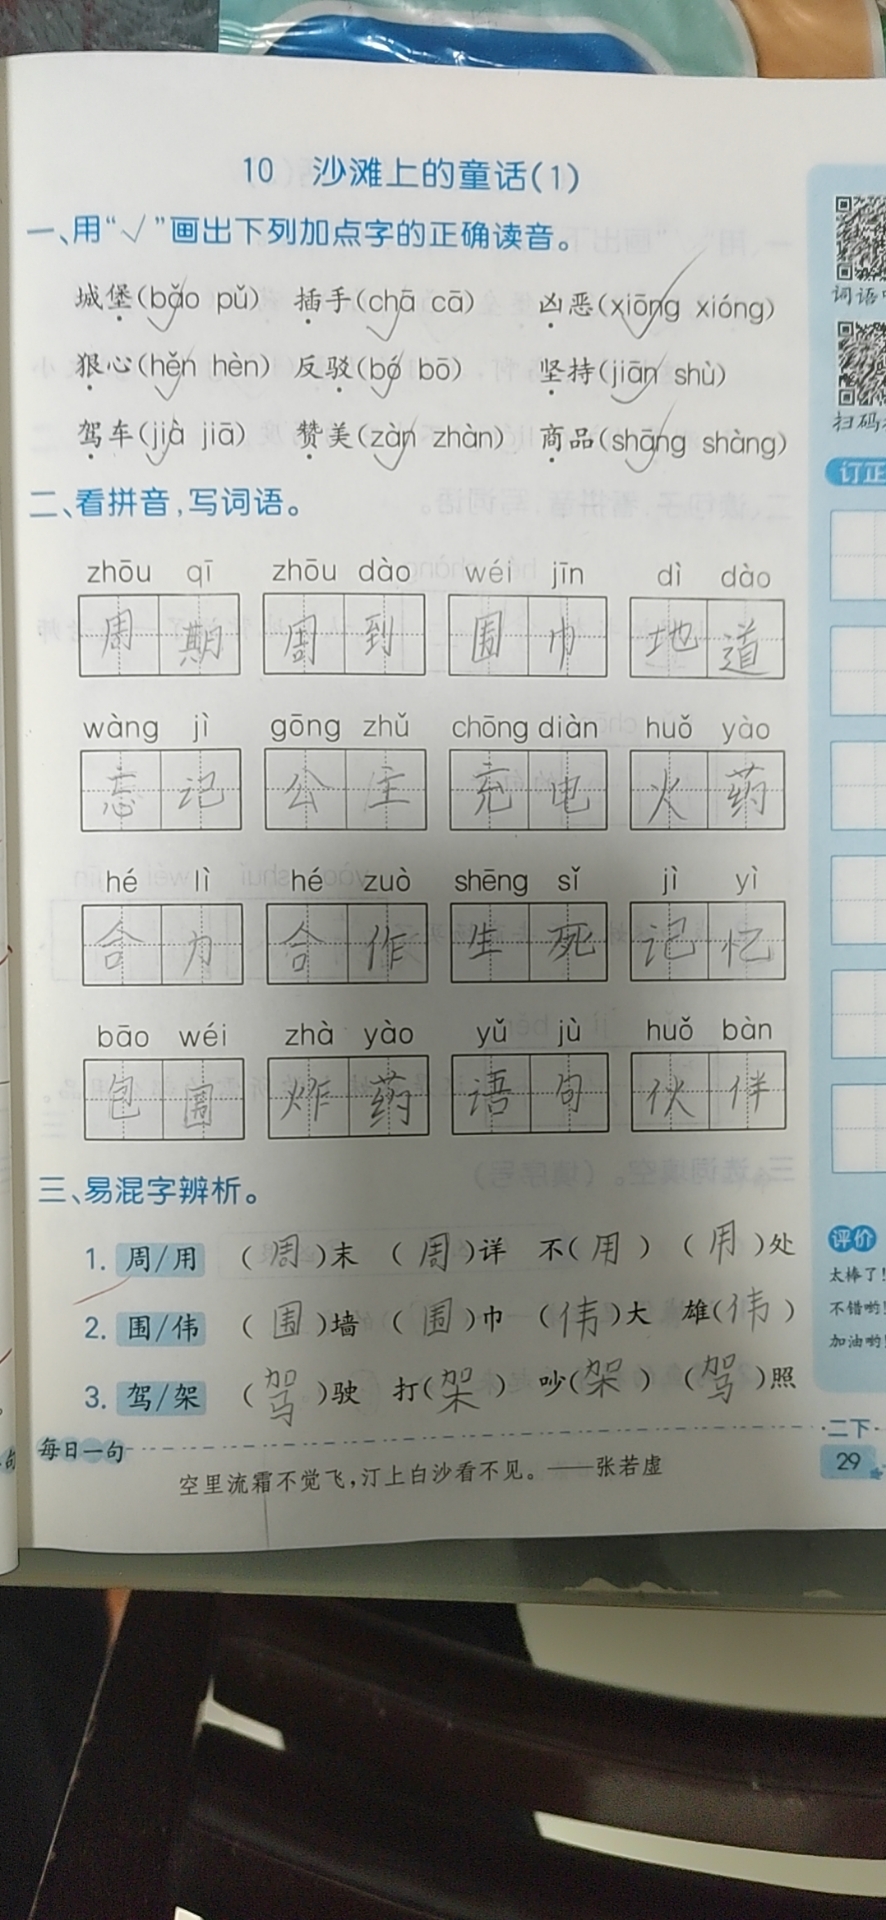 10 沙滩上的童话(1)
一、用“√”画出下列加点字的正确读音。
城堡(bǎo pǔ) 插手(chā cā) 凶恶(xiōng xióng)
狠心(hěn hèn) 反驳(bó bō) 坚持(jiān shù)
驾车(jià jiā) 赞美(zàn zhàn) 商品(shāng shàng)
二、看拼音,写词语。
zhōu qī zhōu dào wéi jīn dì dào
周期 周到 围巾 地道
wàng jì gōng zhǔ chōng diàn huǒ yào
忘记 公主 充电 火药
hé lì hé zuò shēng sǐ jì yì
合力 合作 生死 记忆
bāo wéi zhà yào yǔ jù huǒ bàn
包围 炸药 语句 伙伴
三、易混字辨析。
1. 周/用 (周)末 (周)详 不(用) (用)处
2. 围/伟 (围)墙 (围)巾 (伟)大 雄(伟)
3. 驾/架 (驾)驶 打(架) 吵(架) (驾)照
每日一句
空里流霜不觉飞,汀上白沙看不见。——张若虚
词语
扫码
订正
评价
太棒了!
不错哟!
加油哟!
二下·
29